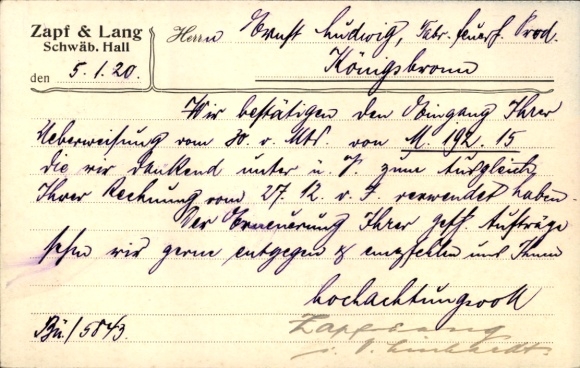 Zapf & Lang
Schwäb. Hall
den 5.1.20.
Herrn Ernst Ludwig, Fabr. feuerf. Prod.
Königsbronn
Wir bestätigen den Eingang Ihrer
Ueberweisung vom 30. v. Mts. von M. 192.15
die wir dankend unter u. V. zum Ausgleich
Ihrer Rechnung vom 27.12. v. J. verwendet haben.
Der Erneuerung Ihrer gefl. Aufträge
sehn wir gerne entgegen & empfehlen uns Ihnen
hochachtungsvoll
Zapf & Lang
Bü./5843